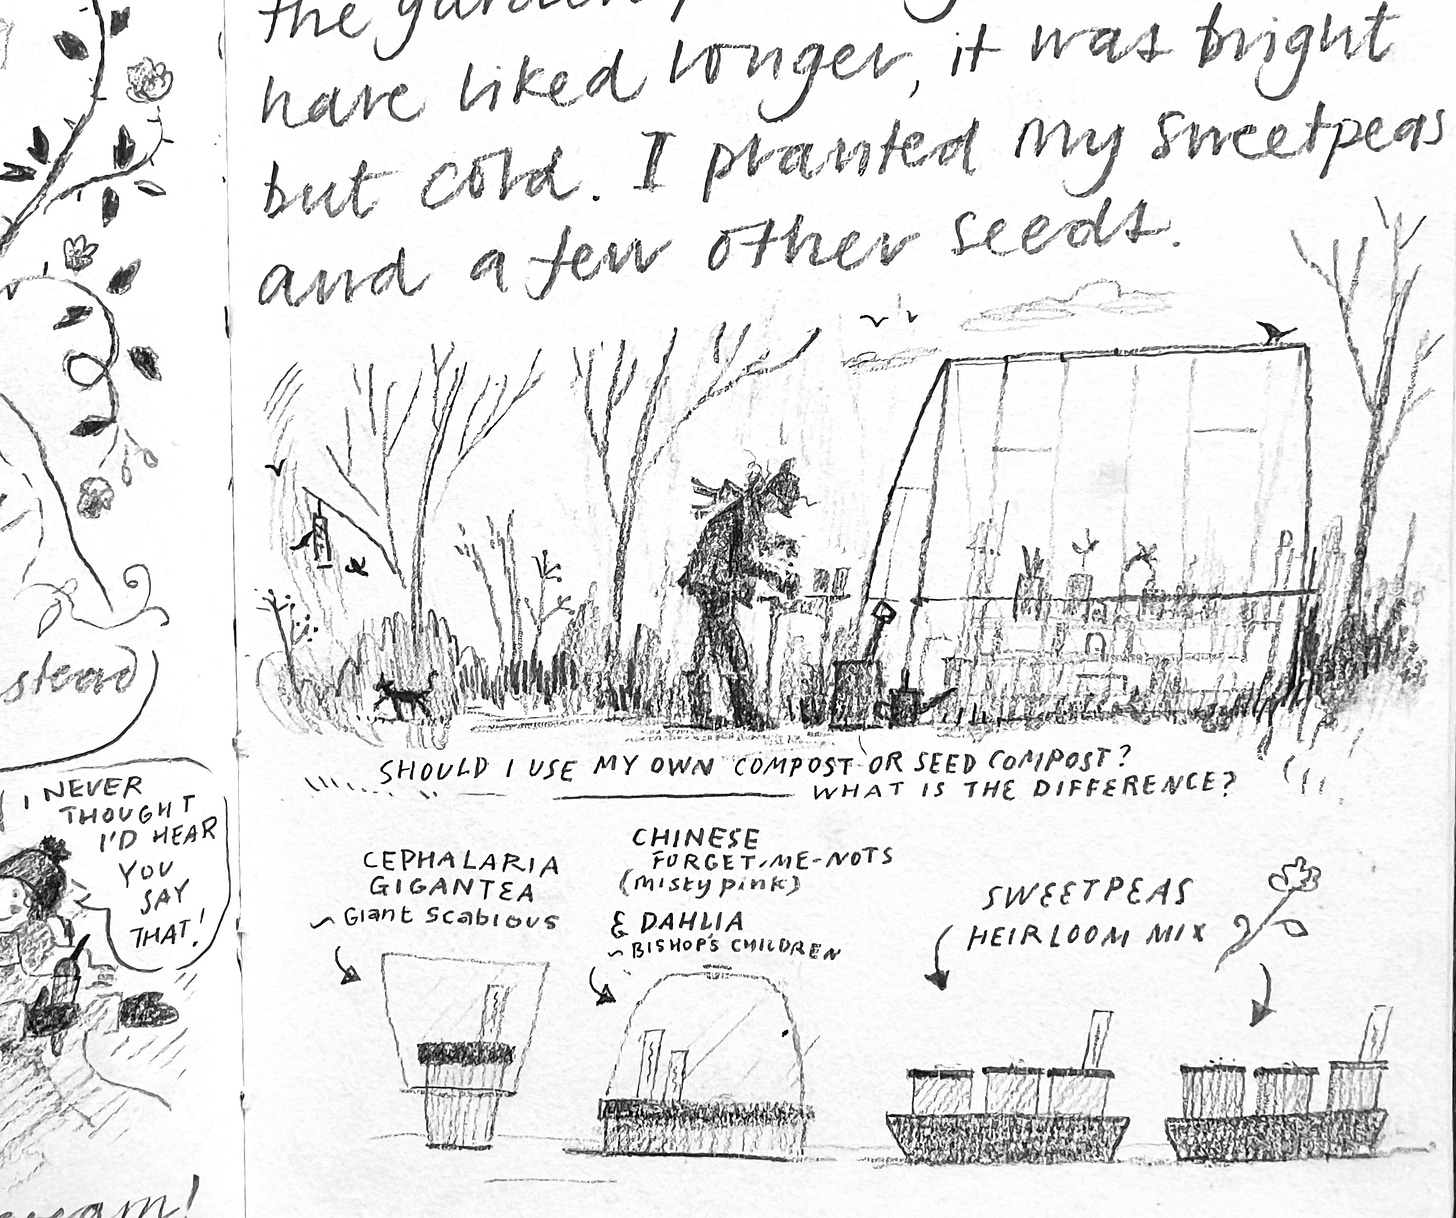 stead
I NEVER
THOUGHT
I'D HEAR
YOU
SAY
THAT!
the garden
have liked longer, it was bright
but cold. I planted my sweetpeas
and a few other seeds.
SHOULD I USE MY OWN COMPOST OR SEED COMPOST?
WHAT IS THE DIFFERENCE?
CEPHALARIA
GIGANTEA
~ Giant Scabious
CHINESE
FORGET-ME-NOTS
(misty pink)
& DAHLIA
~ BISHOP'S CHILDREN
SWEETPEAS
HEIRLOOM MIX